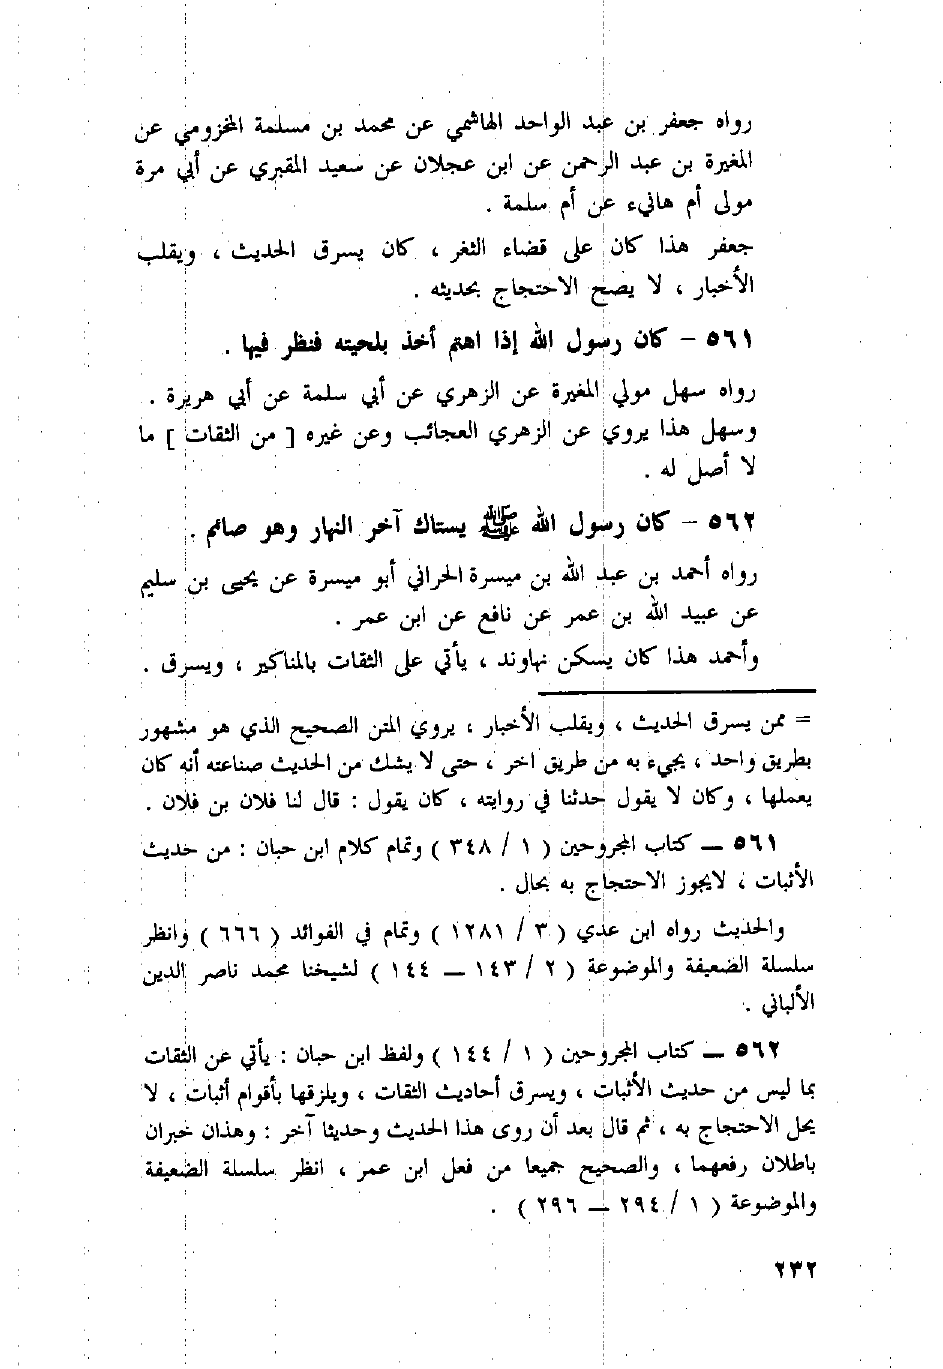 رواه جعفر بن عبد الواحد الهاشمي عن محمد بن مسلمة المخزومي عن
المغيرة بن عبد الرحمن عن ابن عجلان عن سعيد المقبري عن أبي مرة
مولى أم هانيء عن أم سلمة .
جعفر هذا كان على قضاء الثغر ، كان يسرق الحديث ، ويقلب
الأخبار ، لا يصح الاحتجاج بحديثه .
٥٦١ – كان رسول الله إذا اهتم أخذ بلحيته فنظر فيها .
رواه سهل مولي المغيرة عن الزهري عن أبي سلمة عن أبي هريرة .
وسهل هذا يروي عن الزهري العجائب وعن غيره [ من الثقات ] ما
لا أصل له .
٥٦٢ – كان رسول الله ﷺ يستاك آخر النهار وهو صائم .
رواه أحمد بن عبد الله بن ميسرة الحراني أبو ميسرة عن يحيى بن سليم
عن عبيد الله بن عمر عن نافع عن ابن عمر .
وأحمد هذا كان يسكن نهاوند ، يأتي على الثقات بالمناكير ، ويسرق .
= ممن يسرق الحديث ، ويقلب الأخبار ، يروي المتن الصحيح الذي هو مشهور
بطريق واحد ، يجيء به من طريق اخر ، حتى لا يشك من الحديث صناعته أنه كان
يعملها ، وكان لا يقول حدثنا في روايته ، كان يقول : قال لنا فلان بن فلان .
٥٦١ — كتاب المجروحين ( ١ / ٣٤٨ ) وتمام كلام ابن حبان : من حديث
الأثبات ، لايجوز الاحتجاج به بحال .
والحديث رواه ابن عدي ( ٣ / ١٢٨١ ) وتمام في الفوائد ( ٦٦٦ ) وانظر
سلسلة الضعيفة والموضوعة ( ٢ / ١٤٣ — ١٤٤ ) لشيخنا محمد ناصر الدين
الألباني .
٥٦٢ — كتاب المجروحين ( ١ / ١٤٤ ) ولفظ ابن حبان : يأتي عن الثقات
بما ليس من حديث الأثبات ، ويسرق أحاديث الثقات ، ويلزقها بأقوام أثبات ، لا
يحل الاحتجاج به ، ثم قال بعد أن روى هذا الحديث وحديثا آخر : وهذان خبران
باطلان رفعهما ، والصحيح جميعا من فعل ابن عمر ، انظر سلسلة الضعيفة
والموضوعة ( ١ / ٢٩٤ — ٢٩٦ ) .
٢٣٢